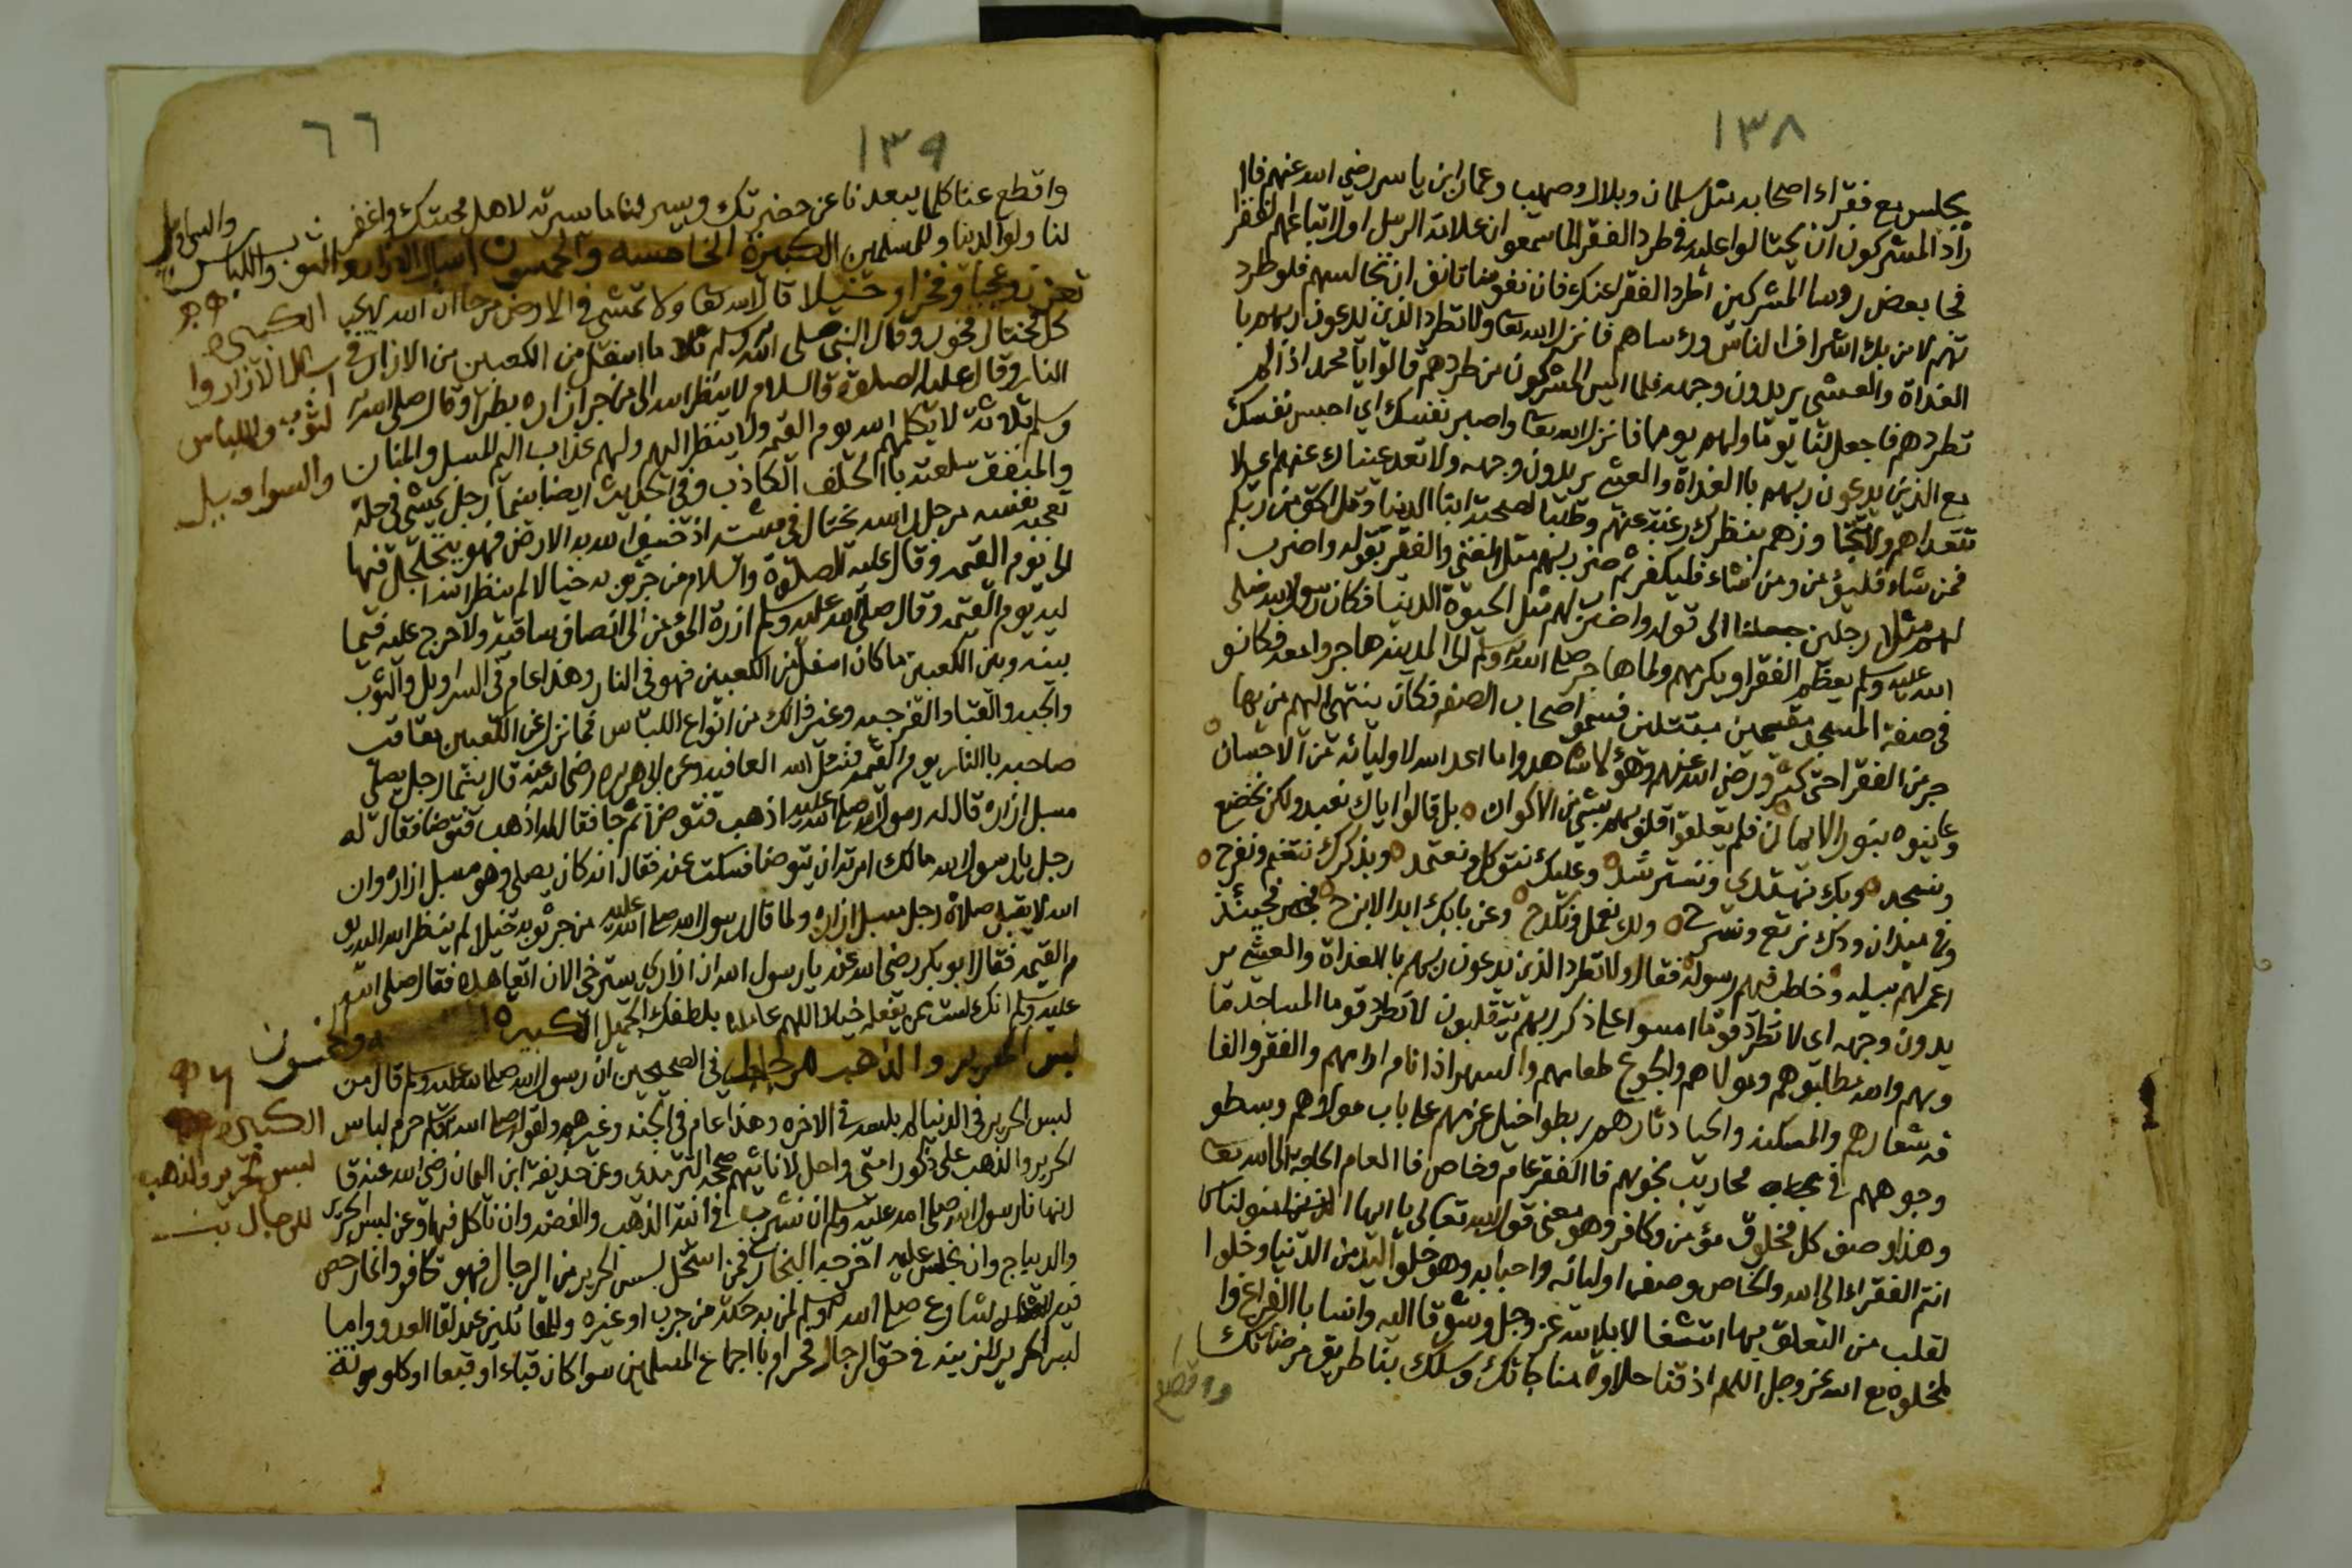 ١٣٨
يجلس مع فقراء اصحابه مثل سلمان وبلال وصهيب وعمار ابن ياسر رضي الله عنهم فاا
راد المشركون ان يحتالوا عليه في طرد الفقرا لما سمعو ان علامة الرسل اول اتباعهم الفقرا
فجا بعض روسا المشركين اطرد الفقرا عنك فان نفوسنا تانف ان نجالسهم فلو طرد
تهم لامن بك اشراف الناس ورؤساهم فانزل الله تعا ولا تطرد الذين يدعون ربهم با
الغداة والعشي يريدون وجهه فلما ايس المشركون من طردهم قالوا يا محمد اذا لم
تطردهم فاجعل لنا يوما ولهم يوما فانزل الله تعا واصبر نفسك اي احبس نفسك
مع الذين يدعون ربهم باالغداة والعشي يريدون وجهه ولا تعد عيناك عنهم اي لا
تتعداهم ولا تتجا وزهم بنظرك رغبة عنهم وطلبا لصحبة ابنا الدنيا وقل الحق من ربكم
فمن شاء فليؤمن ومن شاء فليكفر ثم ضرب لهم مثل الغني والفقر بقوله واضرب
لهم مثلا رجلين جعلنا الى قوله واضرب لهم مثل الحيوة الدنيا فكان رسول الله صلى
الله عليه وسلم يعظم الفقرا ويكرمهم ولما هاجر صلى الله عليه وسلم الى المدينة هاجروا معه فكانو
في صفة المسجد مقيمين متبتلين فسمو اصحاب الصفه فكان ينتهي اليهم من يها
جر من الفقرا حتى كثرو رضي الله عنهم وهؤلا شاهدوا ما اعد الله لاوليائه من الاحسان
وعاينوه بنور الايمان فلم يعلقوا قلوبهم بشي من الاكوان بل قالوا اياك نعبد ولكن نخضع
ونسجد وبك نهتدي ونسترشد وعليك نتوكل ونعتمد وبذكرك نتنعم ونفرح
وفي ميدان ودك نرتع ونسرح ولك نعمل ونكدح وعن بابك ابدا لا نبرح فحينئذ
اعمر لهم سبيله وخاطب فيهم رسوله فقال ولا تطرد الذين يدعون ربهم بالغداة والعشي ير
يدون وجهه اى لا تطرد قوما امسوا على ذكر ربهم يتقلبون لا تطرد قوما المساجد ما
ويهم والله مطلبوهم ومولاهم والجوع طعامهم والسهر اذا نام ادامهم والفقر والفا
قه شعارهم والمسكنه والحيا دثارهم ربطوا خيل عزمهم على باب مولاهم وبسطو
وجوههم في محاريب نجويهم فا الفقر عام وخاص فا العام الحاجة الى الله تعا
وهذا وصف كل مخلوق مؤمن وكافر وهو معنى قول الله تعالى يا ايها الناس
انتم الفقراء الى الله والخاص وصف اوليائه واحبابه وهو خلو اليد من الدنيا وخلوا
لقلب من التعلق بها اشتغالا بالله عز وجل وشوقا اليه وانسا باالفراغ وا
لخلوه مع الله عز وجل اللهم اذقنا حلاوة مناجاتك وسلك بنا طريق مرضاتك
واقطع
٦٦
١٣٩
واقطع عنا كلما يبعدنا عن حضرتك ويسر لنا ما يسرته لاهل محبتك واغفر
لنا ولوالدينا وللمسلمين الكبيرة الخامسه والخمسون اسبال الازار والثوب واللباس والسراويل
تعززا وعجبا وفخرا وخيلا قال الله تعا ولا تمش في الارض مرحا ان الله لا يحب
كل مختال فخور وقال النبي صلى الله عليه وسلم ما اسفل من الكعبين من الازار في
النار وقال عليه الصلوة والسلام لا ينظر الله الى من جر ازاره بطرا وقال صلى الله عليه
وسلم ثلاثه لا يكلمهم الله يوم القيمه ولا ينظر اليهم ولهم عذاب اليم المسبل والمنان
والمنفق سلعته باالحلف الكاذب وفي الحديث ايضا بينما رجل يمشي في حلة
تعجبه نفسه مرجل راسه يختال في مشيته اذ خسف الله به الارض فهو يتجلجل فيها
الى يوم القيمه وقال عليه الصلوة والسلام من جر ثوبه خيلا لم ينظر الله ا
ليه يوم القيمه وقال صلى الله عليه وسلم ازرة المؤمن الى انصاف ساقيه ولا حرج عليه فيما
بينه وبين الكعبين ما كان اسفل من الكعبين فهو في النار وهذا عام في السراويل والثوب
والجبه والقبا والفرجيه وغير ذالك من انواع اللباس فما نزل عن الكعبين يعاقب
صاحبه باالنار يوم القيمه فنسئل الله العافيه وعن ابي هريره رضي الله عنه قال بينما رجل يصلي
مسبل ازاره قال له رسول الله صلى الله عليه اذهب فتوضا ثم جا فقال له اذهب فتوضا فقال له
رجل يا رسول الله مالك امرته ان يتوضا فسكت عنه فقال انه كان يصلي وهو مسبل ازاره وان
الله لا يقبل صلاة رجل مسبل ازاره ولما قال رسول الله صلى الله عليه من جر ثوبه خيلا لم ينظر الله اليه يو
م القيمه فقال ابو بكر رضي الله عنه يا رسول الله ان ازاري يسترخى الا ان اتعاهده فقال صلى الله
عليه وسلم انك لست ممن يفعله خيلا اللهم عاملنا بلطفك الجميل الكبيرة السادسه وخمسون
لبس الحرير والذهب للرجال في الصحيحين ان رسول الله صلى الله عليه وسلم قال من
لبس الحرير في الدنيا لم يلبسه في الاخره وهذا عام في الجند وغيرهم ولقوله صلى الله عليه وسلم حرم لباس
الحرير والذهب على ذكور امتي واحل لاناثهم صححه الترمذي وعن حذيفه ابن اليمان رضي الله عنه قا
ل نهانا رسول الله صلى الله عليه وسلم ان نشرب في انية الذهب والفضه وان ناكل فيها وعن لبس الحرير
والديباج وان نجلس عليه اخرجه البخاري فمن استحل لبس الحرير من الرجال فهو كافر وانما رخص
فيه الشارع صلى الله عليه وسلم لمن به حكة من جرب او غيره وللمقاتلين عند لقا العدو واما
لبس الحرير للزينه في حق الرجال فحرام با اجماع المسلمين سوا كان قباء او قبعا او كلوته
الكبيره
اسبال الازار وا
لثوب واللباس
والسراويل
٥٦
الكبيره
لبس الحرير والذهب
للرجال